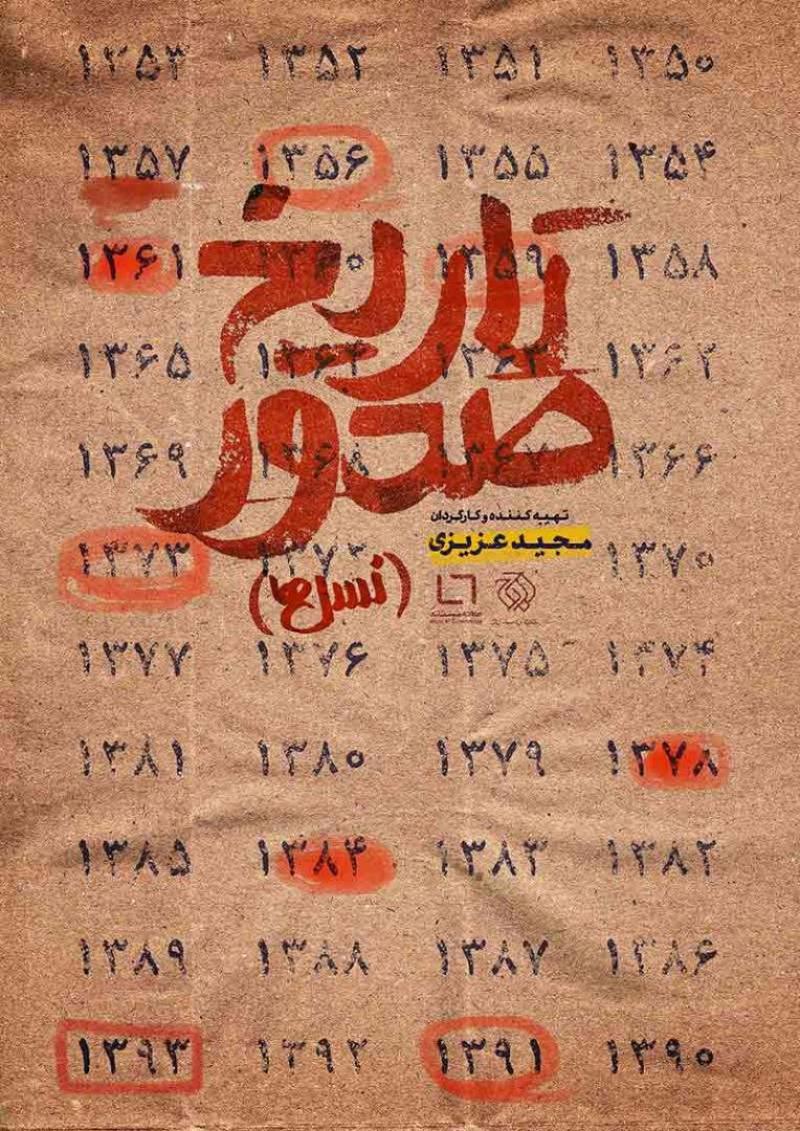 ۱۳۵۰ ۱۳۵۱ ۱۳۵۲ ۱۳۵۳
۱۳۵۴ ۱۳۵۵ ۱۳۵۶ ۱۳۵۷
تاریخ
۱۳۵۸ ۱۳۵۹ ۱۳۶۰ ۱۳۶۱
۱۳۶۲ ۱۳۶۳ ۱۳۶۴ ۱۳۶۵
صدور
۱۳۶۶ ۱۳۶۷ ۱۳۶۸ ۱۳۶۹
تهیه کننده و کارگردان
مجید عزیزی
۱۳۷۰ ۱۳۷۲ ۱۳۷۳
(نسل ما)
۱۳۷۴ ۱۳۷۵ ۱۳۷۶ ۱۳۷۷
۱۳۷۸ ۱۳۷۹ ۱۳۸۰ ۱۳۸۱
۱۳۸۲ ۱۳۸۳ ۱۳۸۴ ۱۳۸۵
۱۳۸۶ ۱۳۸۷ ۱۳۸۸ ۱۳۸۹
۱۳۹۰ ۱۳۹۱ ۱۳۹۲ ۱۳۹۳